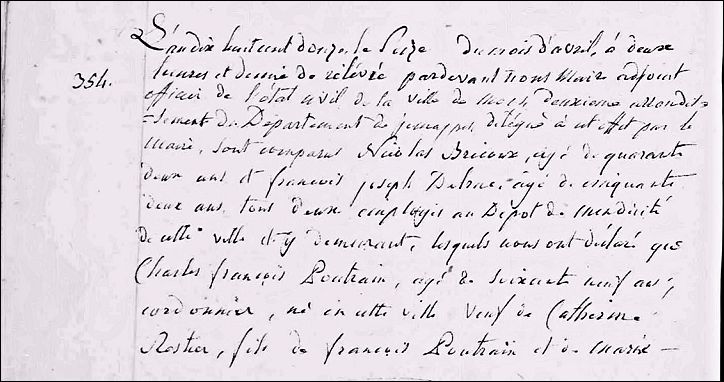 L'an dix huit cent douze, le Seize du mois d'avril, à deux
354.
heures et demie de relévée pardevant nous Maire adjoint
officier de l'état civil de la ville de Mons, deuxieme arrondis-
=sement du Département de jemappes, délégué à cet effet par le
Maire, sont comparus Nicolas Bricoux, agé de quarante
deux ans, et françois joseph agé de cinquante
deux ans, tous deux employés au Dépot de Mendicité
de cette ville et y demeurant, lesquels nous ont déclaré que
Charles françois Poutrain, agé de soixante neuf ans,
cordonnier, né en cette ville Veuf de Catherine
Rostier, fils de françois Poutrain et de Marie -